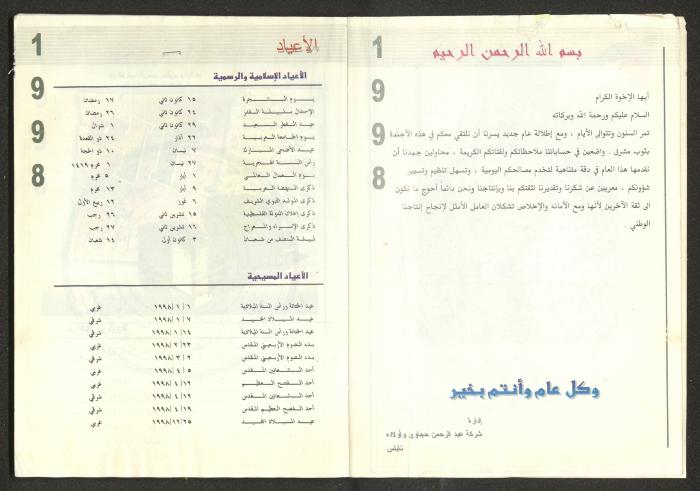 1
9
9
8
بسم الله الرحمن الرحيم
أيها الإخوة الكرام
السلام عليكم ورحمة الله وبركاته
تمر السنون وتتوالى الأيام ، ومع إطلالة عام جديد يسرنا أن نلتقي معكم في هذه الأجندة
بثوب مشرق . واضعين في حساباتنا ملاحظاتكم ولفتاتكم الكريمة ، محاولين جهدنا أن
نقدمها هذا العام في دقة متناهية لتخدم مصالحكم اليومية ، وتسهل تنظيم وتسيير
شؤونكم ، معربين عن شكرنا وتقديرنا لثقتكم بنا وبإنتاجنا ونحن دائماً أحوج ما نكون
الى ثقة الآخرين لأنها ومع الأمانه والإخلاص تشكلان العامل الأمثل لإنجاح إنتاجنا
الوطني .
وكل عام وأنتم بخير
إدارة
شركة عبد الرحمن حجاوي وأولاده
نابلس
1
9
9
8
الأعياد
الأعياد الإسلامية والرسمية
يوم الشجرة ١٥ كانون ثاني ١٧ رمضان
الإحتفال بليلة القدر ٢٤ كانون ثاني ٢٦ رمضان
عيد الفطر السعيد ٢٩ كانون ثاني ١ شوال
يوم الجامعة العربية ٢٢ آذار ٢٤ ذو القعدة
عيد الأضحى المبارك ٧ نيسان ١٠ ذو الحجة
رأس السنة الهجرية ٢٧ نيسان ١ محرم ١٤١٩
يوم العمال العالمي ١ أيار ٥ محرم
ذكرى النهضة العربية أيار ١٣ محرم
ذكرى المولد النبوي الشريف ٦ تموز ١٢ ربيع الأول
ذكرى إعلان الدولة الفلسطينية ١٥ تشرين ثاني ٢٦ رجب
ذكرى الإسراء والمعراج ١٦ تشرين ثاني ٢٧ رجب
ليلة النصف من شعبان ٣ كانون أول ١٤ شعبان
الأعياد المسيحية
عيد الختانة ورأس السنة الميلادية ١ / ١ / ١٩٩٨ غربي
عيد الميلاد المجيد ٧ / ١ / ١٩٩٨ شرقي
عيد الختانة ورأس السنة الميلادية ١٤ / ١ / ١٩٩٨ شرقي
بدء الصوم الأربعيني المقدس ٢٣ / ٢ / ١٩٩٨ غربي
بدء الصوم الأربعيني المقدس ٢ / ٣ / ١٩٩٨ شرقي
أحد الشعانين المقدس ٥ / ٤ / ١٩٩٨ غربي
أحد الفصح العظيم ١٢ / ٤ / ١٩٩٨ غربي
أحد الشعانين المقدس ١٢ / ٤ / ١٩٩٨ شرقي
أحد الفصح العظيم المقدس ١٩ / ٤ / ١٩٩٨ شرقي
عيد الميلاد المجيد ٢٥ / ١٢ / ١٩٩٨ غربي